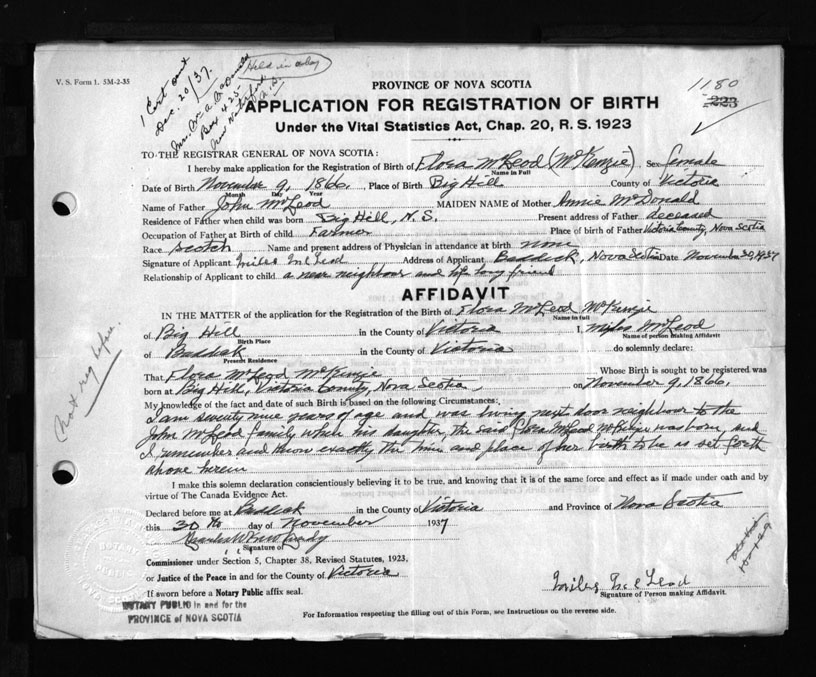 V. S. Form 1. 5M-2-35
1 Cert sent
Dec. 20/37.
Held in abey
Box 425
PROVINCE OF NOVA SCOTIA
1180
223
APPLICATION FOR REGISTRATION OF BIRTH
Under the Vital Statistics Act, Chap. 20, R. S. 1923
TO THE REGISTRAR GENERAL OF NOVA SCOTIA:
I hereby make application for the Registration of Birth of Flora McLeod (McKenzie) Sex female
Name in Full
Date of Birth November 9, 1866, Place of Birth Big Hill County of Victoria
Month Day Year
Name of Father John McLeod MAIDEN NAME of Mother Annie McDonald
Residence of Father when child was born Big Hill, N.S. Present address of Father deceased
Occupation of Father at Birth of child Farmer Place of birth of Father Victoria County, Nova Scotia
Race Scotch Name and present address of Physician in attendance at birth none
Signature of Applicant Miles McLeod Address of Applicant Baddeck, Nova Scotia Date November 30, 1937
Relationship of Applicant to child a near neighbour and life long friend
AFFIDAVIT
IN THE MATTER of the application for the Registration of the Birth of Flora McLeod McKenzie
Name in full
of Big Hill in the County of Victoria I, Myles McLeod
Birth Place Name of person making Affidavit
of Baddeck in the County of Victoria do solemnly declare:
Present Residence
That Flora McLeod McKenzie Whose Birth is sought to be registered was
born at Big Hill, Victoria County, Nova Scotia, on November 9, 1866,
My knowledge of the fact and date of such Birth is based on the following Circumstances:
I am seventy nine years of age and was living next door neighbour to the
John McLeod family when his daughter, the said Flora McLeod McKenzie was born, and
I remember and know exactly the time and place of her birth to be as set forth
above herein
Not reg before.
I make this solemn declaration conscientiously believing it to be true, and knowing that it is of the same force and effect as if made under oath and by
virtue of The Canada Evidence Act.
Declared before me at Baddeck in the County of Victoria and Province of Nova Scotia
this 30th day of November 1937
Signature of
Commissioner under Section 5, Chapter 38, Revised Statutes, 1923,
or Justice of the Peace in and for the County of Victoria
If sworn before a Notary Public affix seal.
Miles McLeod
Signature of Person making Affidavit.
NOTARY PUBLIC in and for the
PROVINCE OF NOVA SCOTIA
For Information respecting the filling out of this Form, see Instructions on the reverse side.